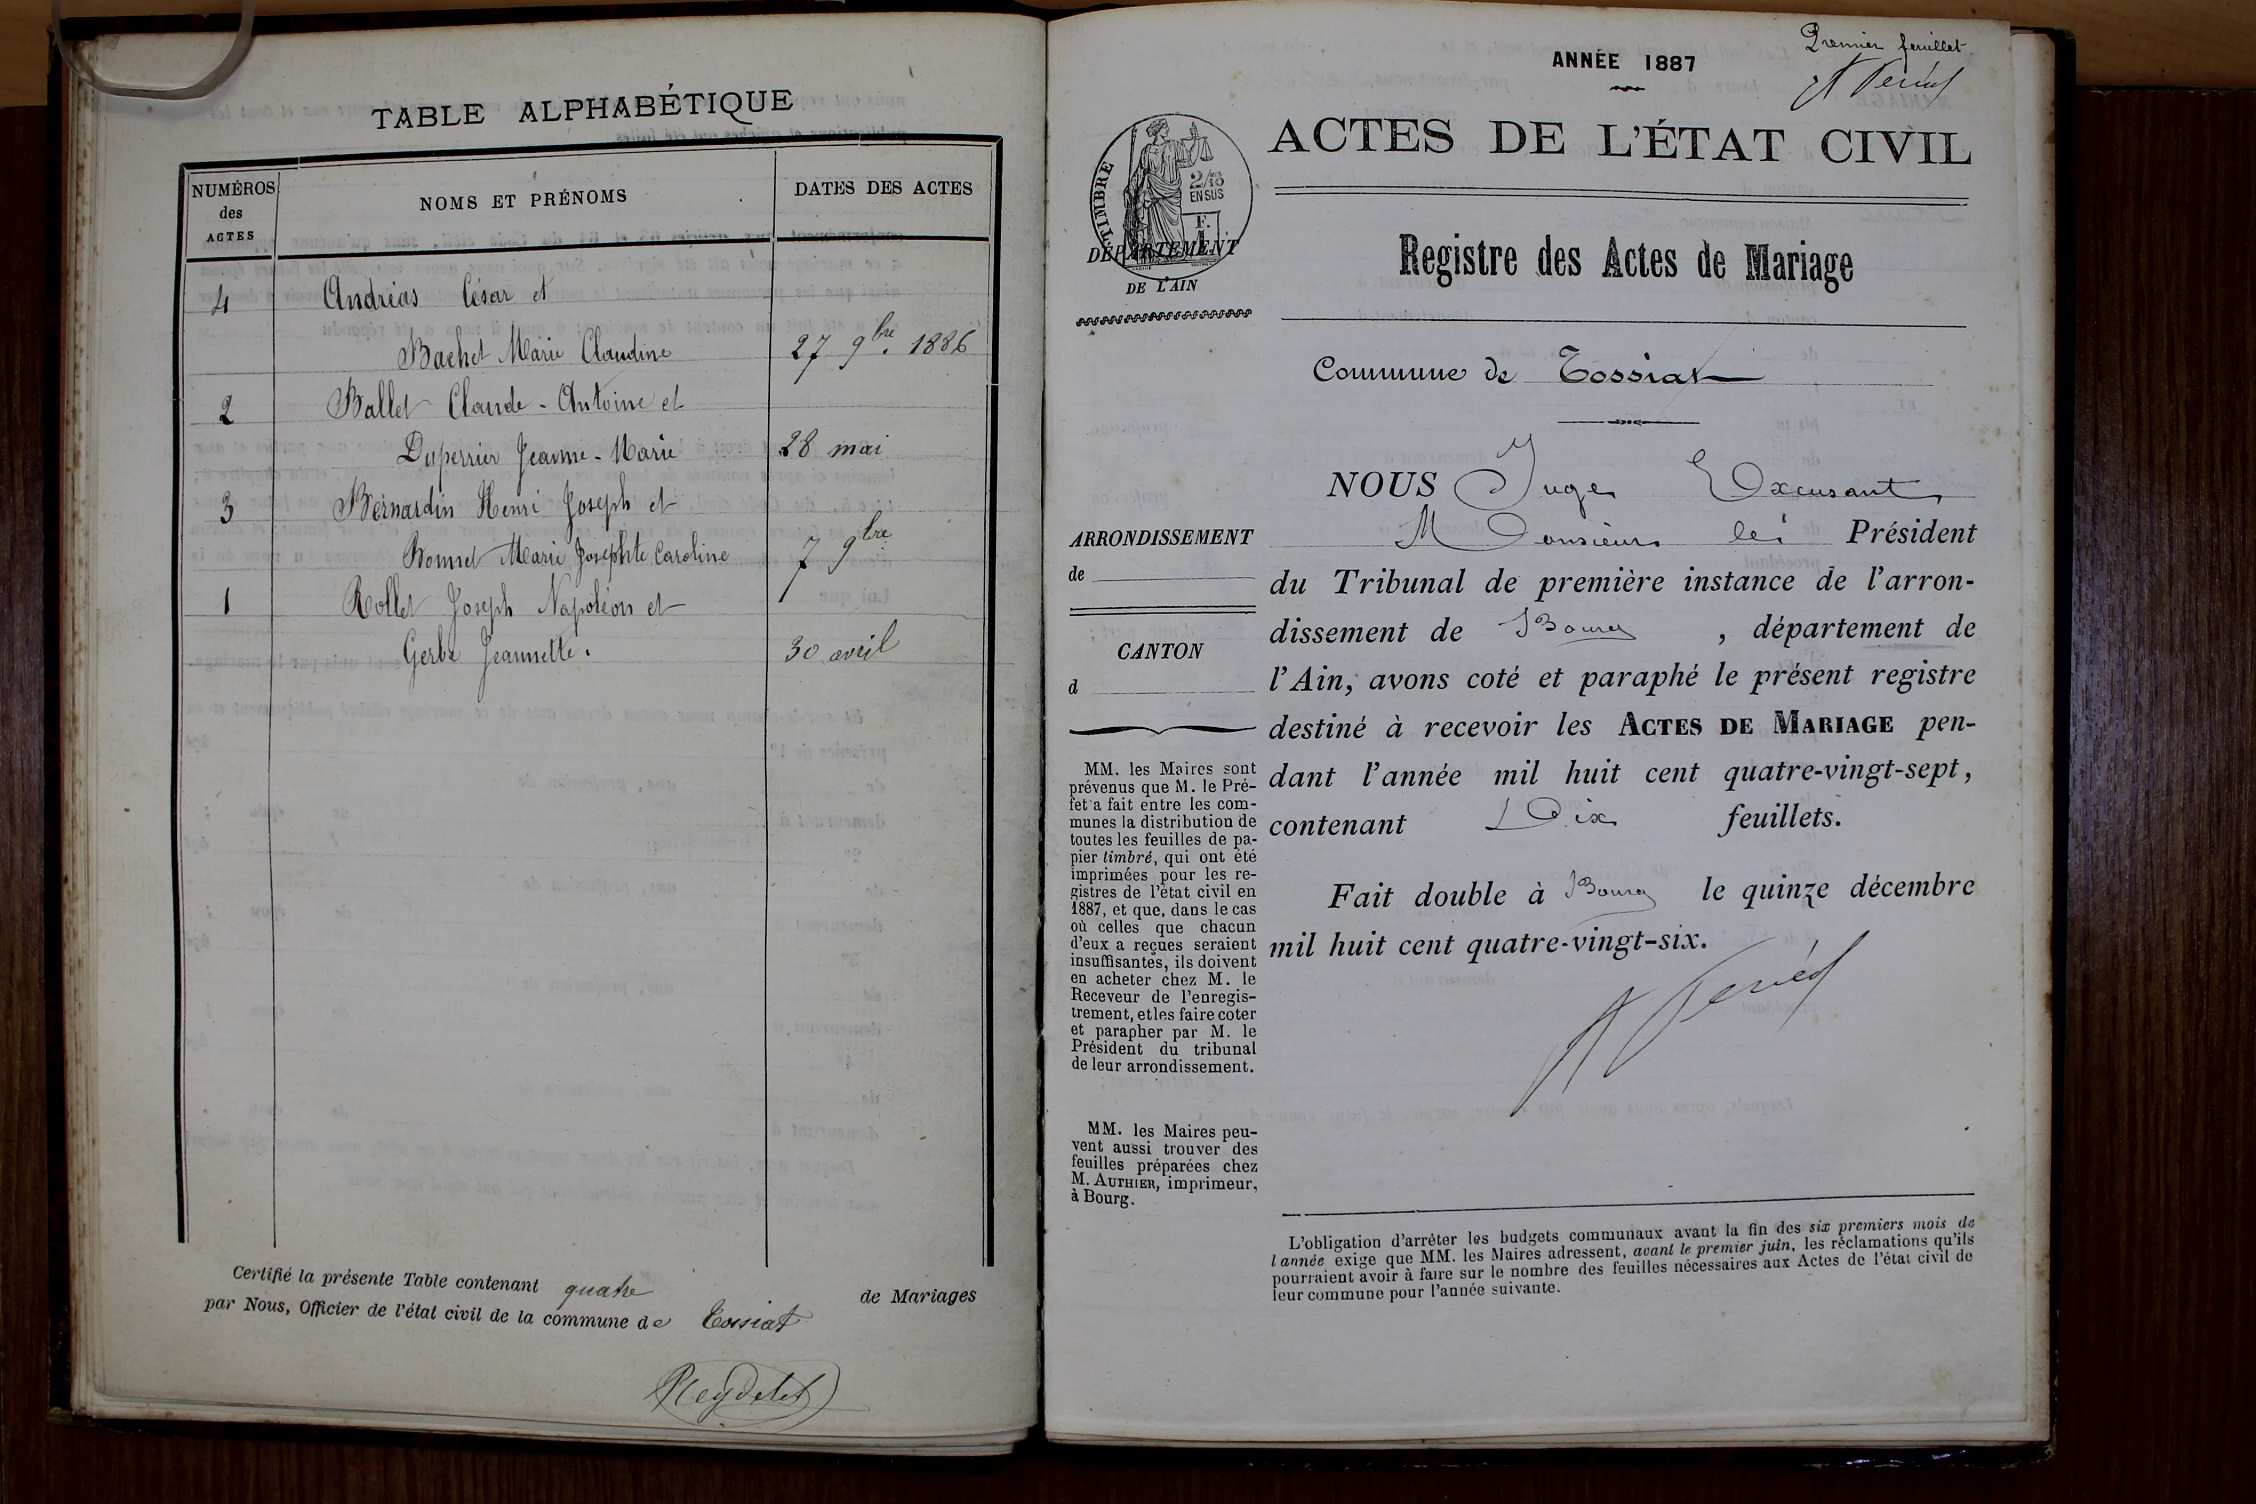 TABLE ALPHABÉTIQUE
NUMÉROS
des
ACTES
NOMS ET PRÉNOMS
DATES DES ACTES
4 Andréas César et
Bachet Marie Claudine 27 9bre. 1886
2 Ballet Claude-Antoine et
Duperrier Jeanne-Marie 28 mai
3 Bernardin Henri Joseph et
Bonnet Marie Josephte Caroline 7 9bre
1 Rollet Joseph Napoléon et
Gerbe Jeannette. 30 avril
Certifié la présente Table contenant quatre de Mariages
par Nous, Officier de l'état civil de la commune de Tossiat
Reydelet
Premier feuillet
ANNÉE 1887
ACTES DE L'ÉTAT CIVIL
TIMBRE
2/10
EN SUS
F.
1
DÉPARTEMENT
DE L'AIN
Registre des Actes de Mariage
Commune de Tossiat
ARRONDISSEMENT
de
CANTON
d
MM. les Maires sont
prévenus que M. le Pré-
fet a fait entre les com-
munes la distribution de
toutes les feuilles de pa-
pier timbré, qui ont été
imprimées pour les re-
gistres de l'état civil en
1887, et que, dans le cas
où celles que chacun
d'eux a reçues seraient
insuffisantes, ils doivent
en acheter chez M. le
Receveur de l'enregis-
trement, et les faire coter
et parapher par M. le
Président du tribunal
de leur arrondissement.
MM. les Maires peu-
vent aussi trouver des
feuilles préparées chez
M. AUTHIER, imprimeur,
à Bourg.
NOUS Juge Excusant
Monsieur le Président
du Tribunal de première instance de l'arron-
dissement de Bourg, département de
l'Ain, avons coté et paraphé le présent registre
destiné à recevoir les ACTES DE MARIAGE pen-
dant l'année mil huit cent quatre-vingt-sept,
contenant Dix feuillets.
Fait double à Bourg le quinze décembre
mil huit cent quatre-vingt-six.
L'obligation d'arrêter les budgets communaux avant la fin des six premiers mois de
l'année exige que MM. les Maires adressent, avant le premier juin, les réclamations qu'ils
pourraient avoir à faire sur le nombre des feuilles nécessaires aux Actes de l'état civil de
leur commune pour l'année suivante.